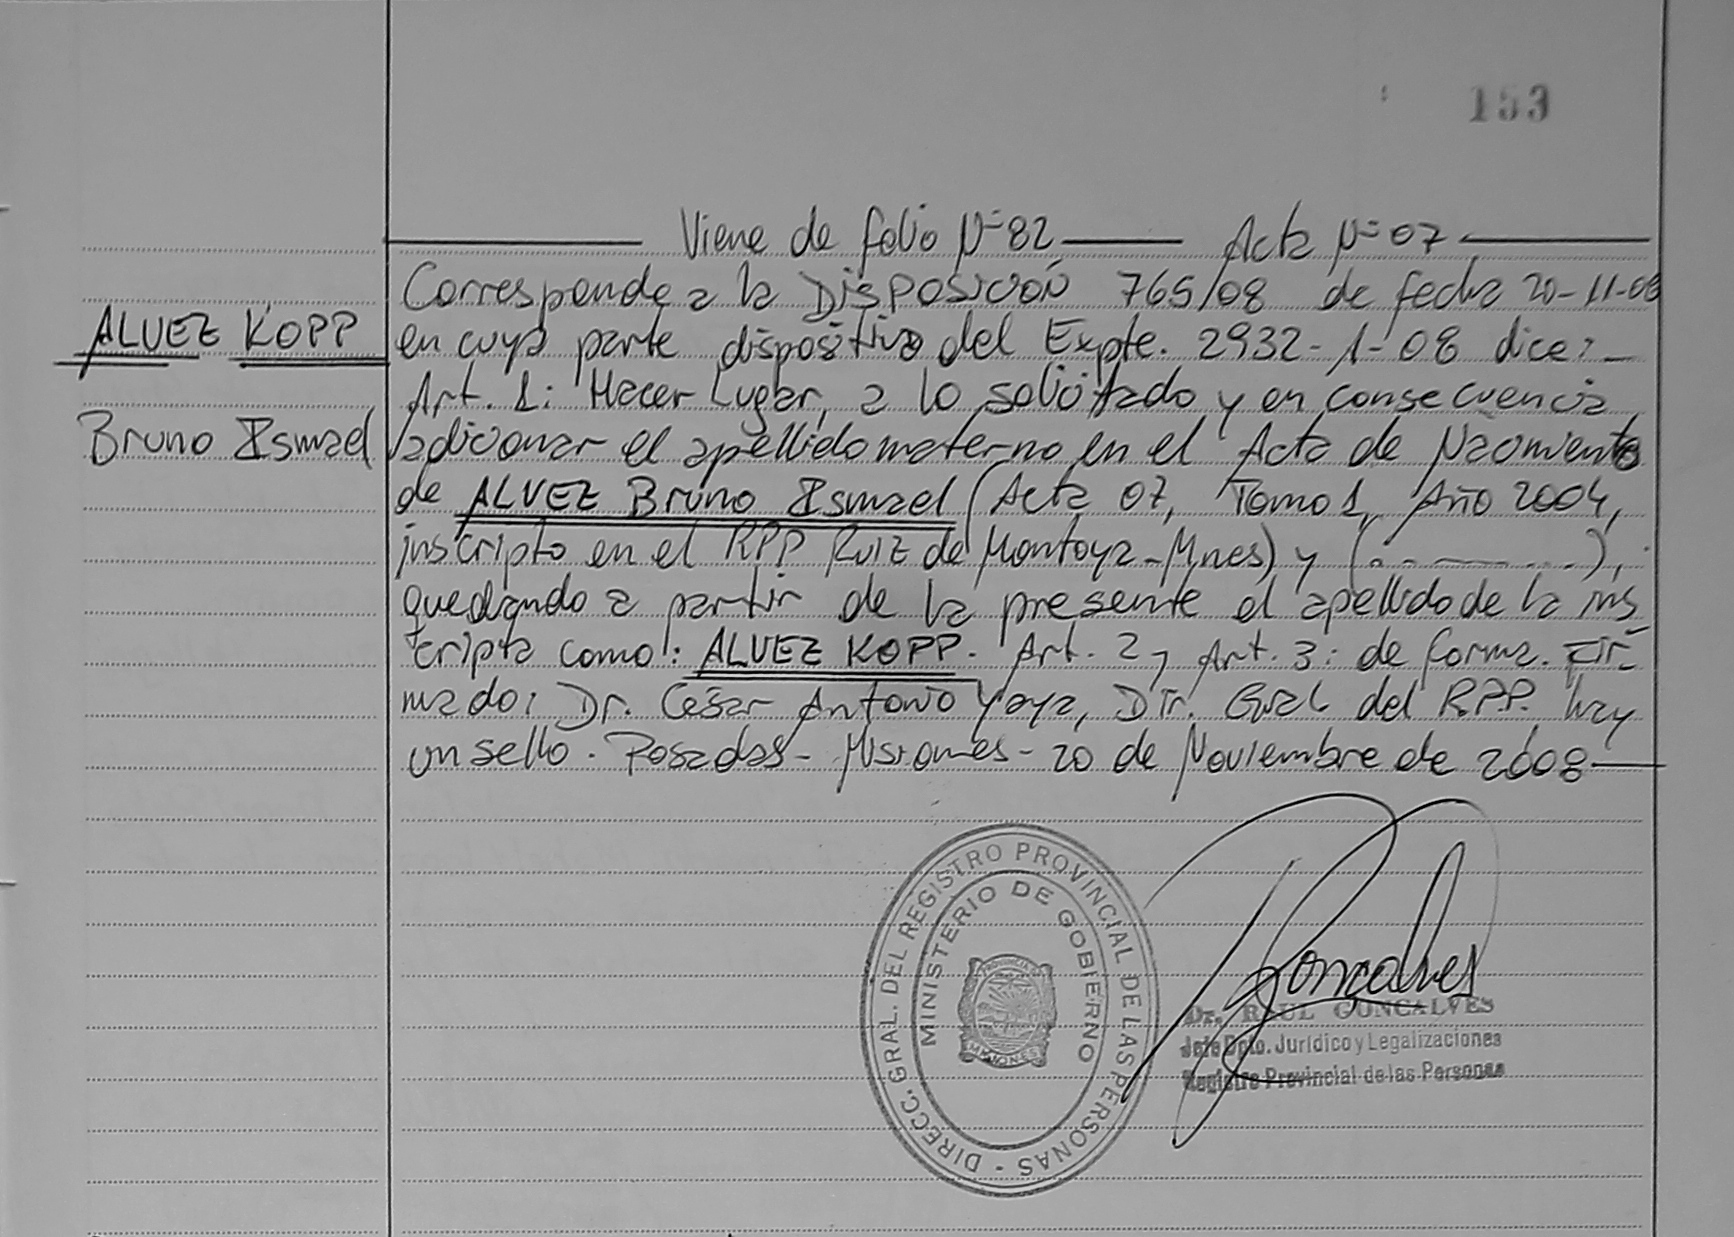 153
Viene de folio Nº 82 Acta Nº 07
Corresponde a la DISPOSICIÓN 765/08 de fecha 20-11-08
ALVEZ KOPP
en cuya parte dispositiva del Expte. 2932-1-08 dice:
Art. 1: Hacer Lugar, a lo solicitado y en consecuencia
Bruno Ismael
adicionar el apellido materno en el Acta de Nacimiento
de ALVEZ Bruno Ismael (Acta 07, Tomo 1, Año 2004,
inscripto en el RPP Ruiz de Montoya-Mnes) y (.........),
quedando a partir de la presente el apellido de la ins
cripta como: ALVEZ KOPP. Art. 2 y Art. 3: de forma. Fir-
mado: Dr. César Antonio Yaya, Dir. Gral del RPP. hay
un sello. Posadas - Misiones - 20 de Noviembre de 2008
DIRECC. GRAL. DEL REGISTRO PROVINCIAL DE LAS PERSONAS -
MINISTERIO DE GOBIERNO
PROVINCIA DE
MISIONES
Goncalves
Dr. RAUL GONCALVES
Jefe Dpto. Jurídico y Legalizaciones
Registro Provincial de las Personas